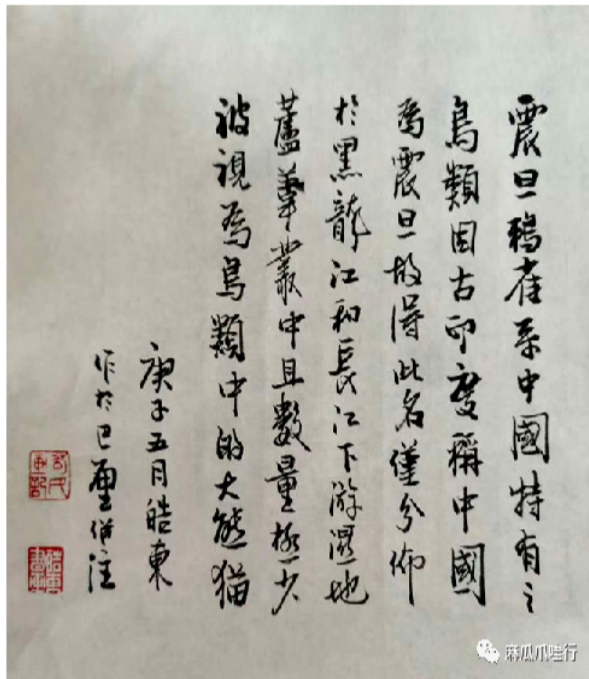 震旦鴉雀系中國特有之
鳥類因古印度稱中國
爲震旦故得此名僅分佈
於黑龍江和長江下游濕地
蘆葦叢中且數量極少
被視爲鳥類中的大熊猫
庚子五月皓東
作於巴墨併注
麻瓜爪哇行